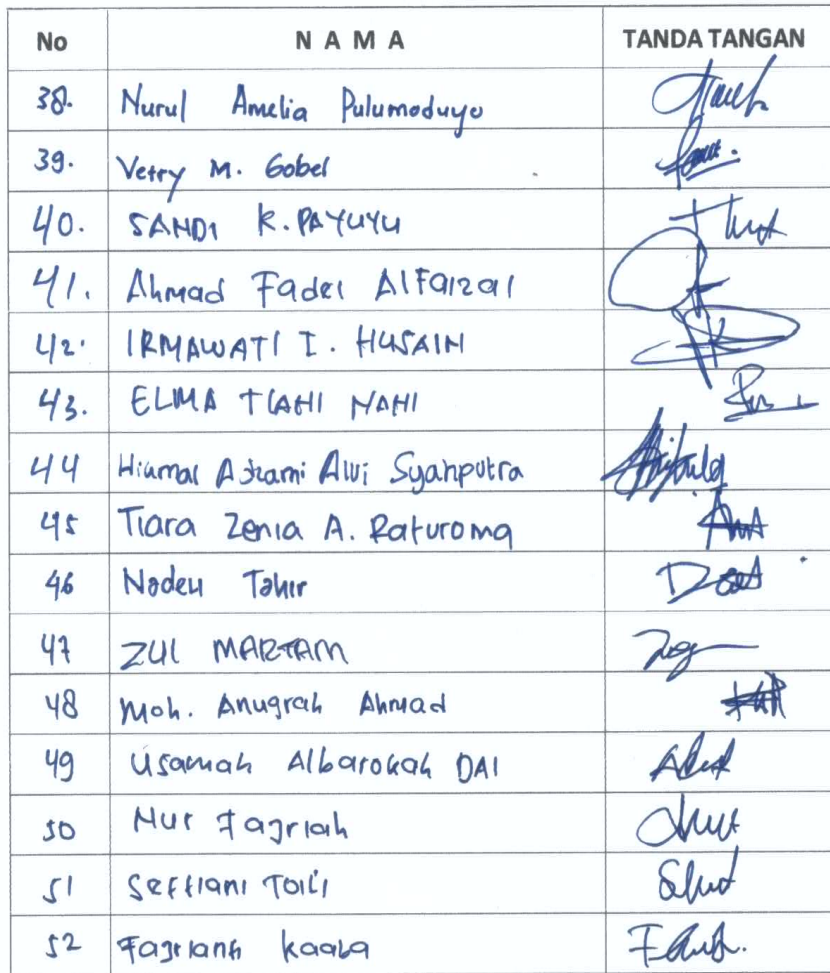 No N A M A TANDA TANGAN
38. Nurul Amelia Pulumoduyo
39. Vetry M. Gobel
40. SANDI K. PAYUYU
41. Ahmad Fadel AlFaizal
42. IRMAWATI I. HUSAIN
43. ELMA TIAHI NAHI
44 Alvi Syahputra
45 Tiara Zenia A. Raturoma
46 Tahir
47 ZUL MARTAM
48 Moh. Anugrah Ahmad
49 Usamah Albarokah DAI
50 Nur Fajriah
51 Seftiani Toili
52 Kaaba